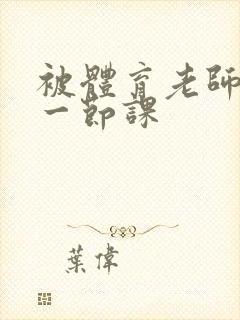 被體育老師
一節課
葉偉